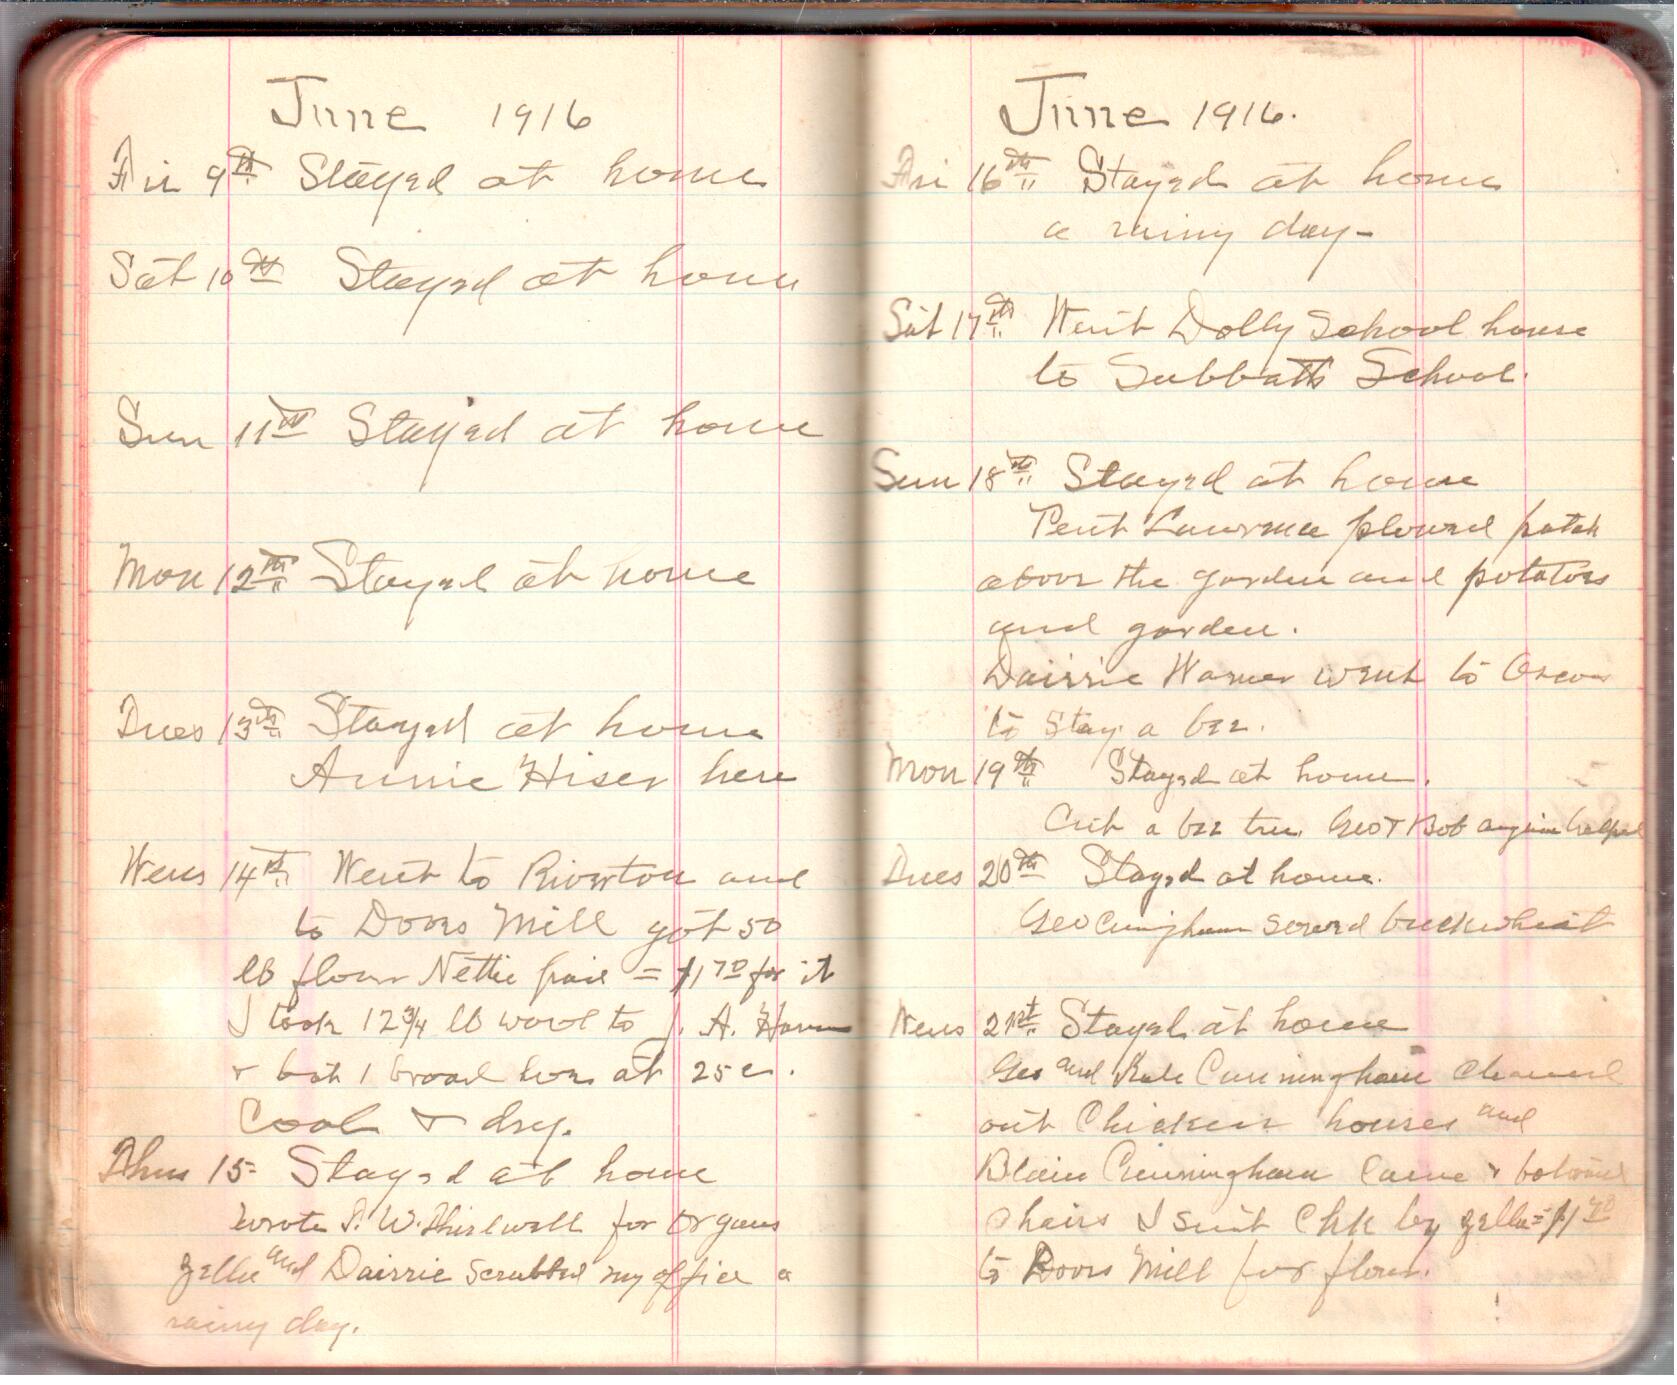 June 1916
Fri 9th Stayed at home
Sat 10th Stayed at home
Sun 11th Stayed at home
Mon 12th Stayed at home
Tues 13th Stayed at home
Annie Hiser here
Wens 14th Went to Riverton and
to Doors Mill got 50
lb flour Nettie paid = $1 70 for it
I took 12 3/4 lb wool to J. A.
& 1 broad hoe at 25 c.
Cool & dry.
Thus 15 Stayed at home
wrote W. Thirlwall for Organs
Zella and Dairrie Scrubbed my office a
rainy day.
June 1916.
Fri 16th Stayed at home
a rainy day-
Sat 17th Went Dolly School house
to Sabbath School.
Sun 18th Stayed at home
Lawrence plowed patch
above the garden and potatoes
and garden.
Dairrie Warner went to
to Stay a bee.
Mon 19th Stayed at home.
Cut a bee tree. Geo & Bob helped
Tues 20th Stayed at home.
Geo Cuningham sowed buckwheat
Wens 21st Stayed at home
Geo and Kate Cunningham cleaned
out Chicken houses and
Blain Cunningham came &
chairs I sent Chk by Zella = $1 70
to Doors Mill for flour.